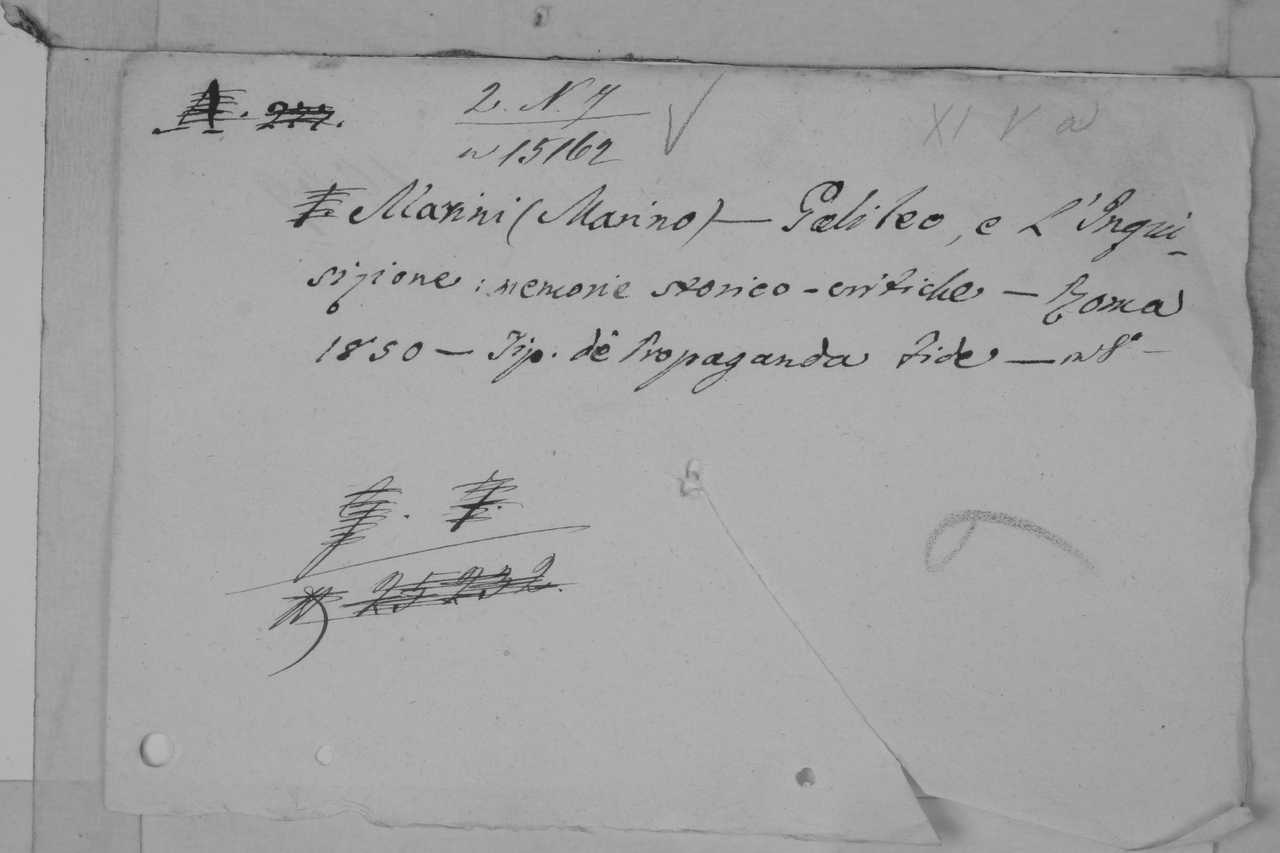 A. 277.
2. N 7
n 15162
XI V a
Marini (Marino) — Galileo, e L'Inqui-
sizione: memorie storico-critiche — Roma
1850 — Tip. de Propaganda Fide — in 8°—
N 25232.